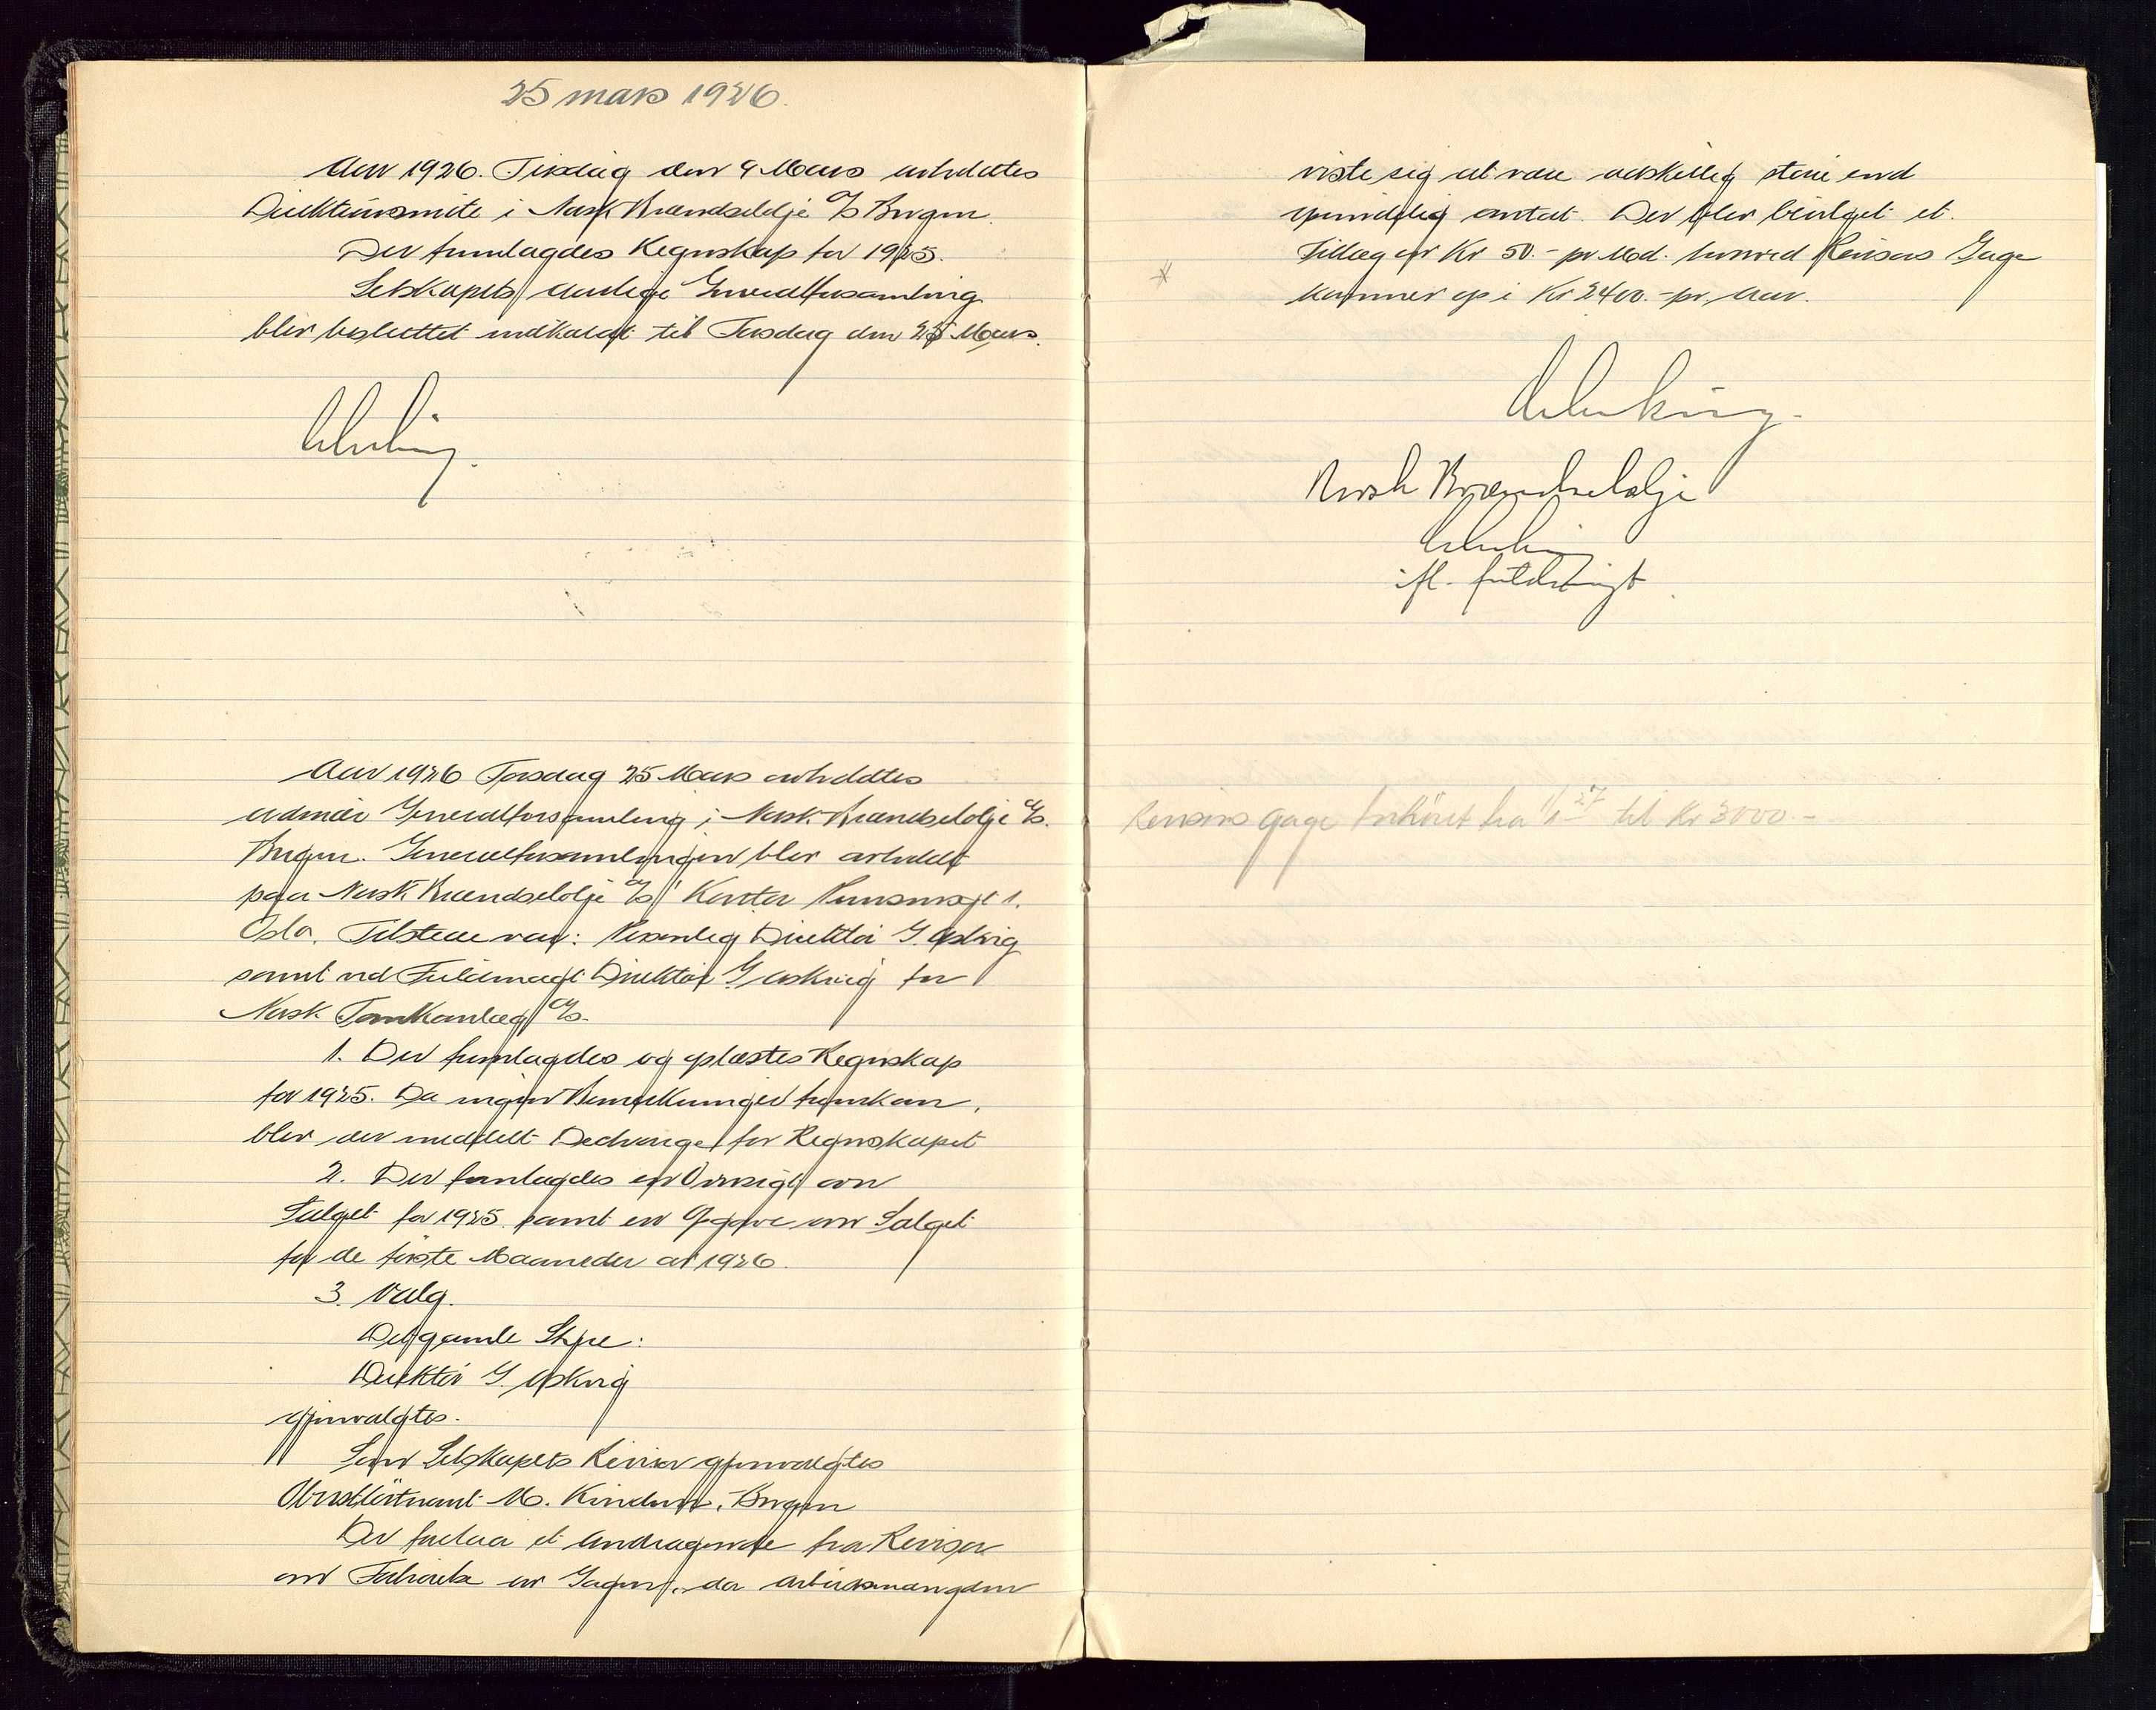 25 mars 1926.
Aar 1926. Tirsdag den 9 Mars avholdtes
Direktionsmöte i Norsk Brændselolje A/S Bergen.
Der fremlagdes Regnskap for 1925.
Selskapets aarlige Generalforsamling
blev besluttet indkaldt til Torsdag den 25 Mars.
Aar 1926 Torsdag 25 Mars avholdtes
ordinær Generalforsamling i Norsk Brændselolje A/S.
Bergen. Generalforsamlingen blev avholdt
paa Norsk Brændselolje A/S' Kontor 1.
Oslo. Tilstede var: Personlig Direktör G.
samt ved Fuldmagt Direktör G. for
Norsk Tankanlæg A/S.
1. Der fremlagdes og oplæstes Regnskap
for 1925. Da ingen Bemerkninger fremkom,
blev der meddelt Decharge for Regnskapet
2. Der fremlagdes en Oversigt over
Salget for 1925 samt en Opgave over Salget
for de förste Maaneder av 1926.
3. Valg.
Det gamle Styre:
Direktör G.
gjenvalgtes.
Som Selskapets Revisor gjenvalgtes
Oberstlöitnant M. Bergen
Der forelaa et Andragende fra Revisor
om Forhöielse av Gagen, da Arbeidsmængden
viste sig at være adskillig större end
oprindelig antat. Der blev bevilget et
Tillæg av Kr 50.- pr. Md. hvorved Revisors Gage
kommer op i Kr 2400.- pr. Aar.
Norsk Brændselolje
ifl. fuldmagt
Revisors gage forhöiet fra 1/1 27 til Kr 3000.-